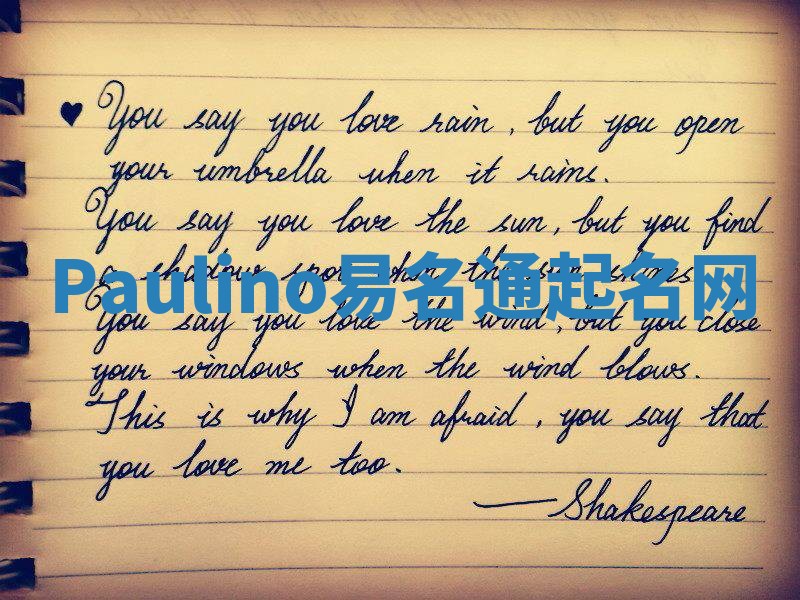 ♥ You say you love rain, but you open
your umbrella when it rains.
You say you love the sun, but you find
a shadow spot when the sun shines
Paulino易名通起名网
You say you love the wind, but you close
your windows when the wind blows.
This is why I am afraid, you say that
you love me too.
— Shakespeare